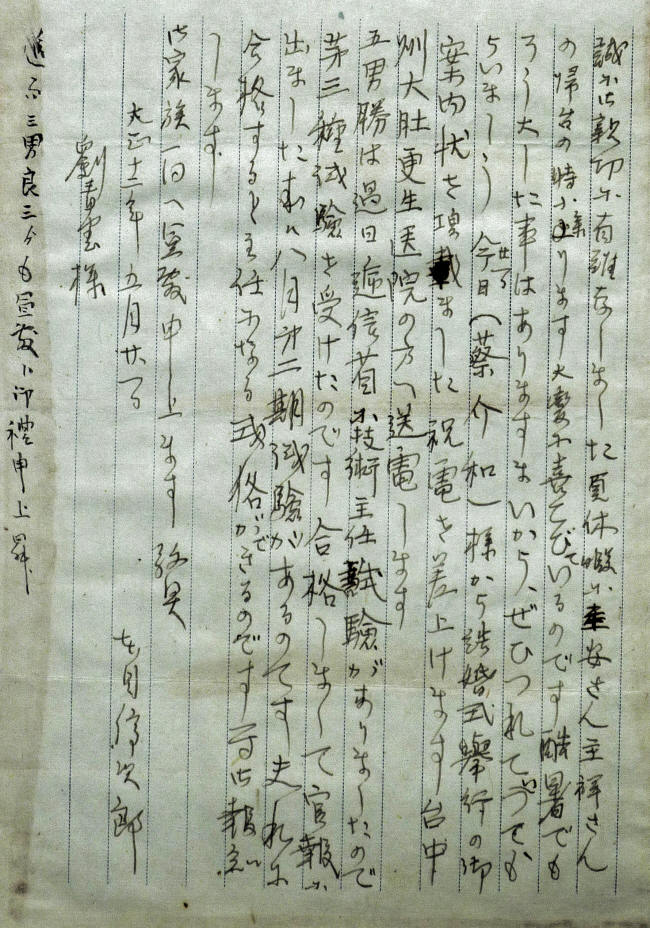 誠に御親切に有難ふしました夏休暇に圭安さん圭祥さん
の帰台の時に参ります大変に喜こびているのです酷暑でも
そう大した事はありませまいから、ぜひつれていつても
らいましよう 今廿一日(蔡介和)様から結婚式擧行の御
案内状を頂戴ました祝電を差上げます台中
州大肚更生医院の方へ送電します
五男勝は過日逓信省に技術主任試驗がありましたので
第三種試驗を受けたのです合格しまして官報に
出ました来八月第二期試驗があるのです夫れに
合格すると主任になる資格ができるのです一寸御報急
します
御家族一同へ宜敷申し上ます 敬具
大正十一年五月廿一日
劉青雲様
追而三男良三からも宜敷御禮申上昇